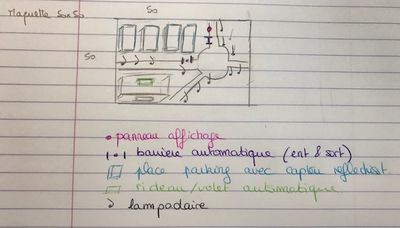 Maquette 50x50
50
50
panneau affichage
barrière automatique (ent & sort)
place parking avec capteur reflechist
rideau/volet automatique
lampadaire